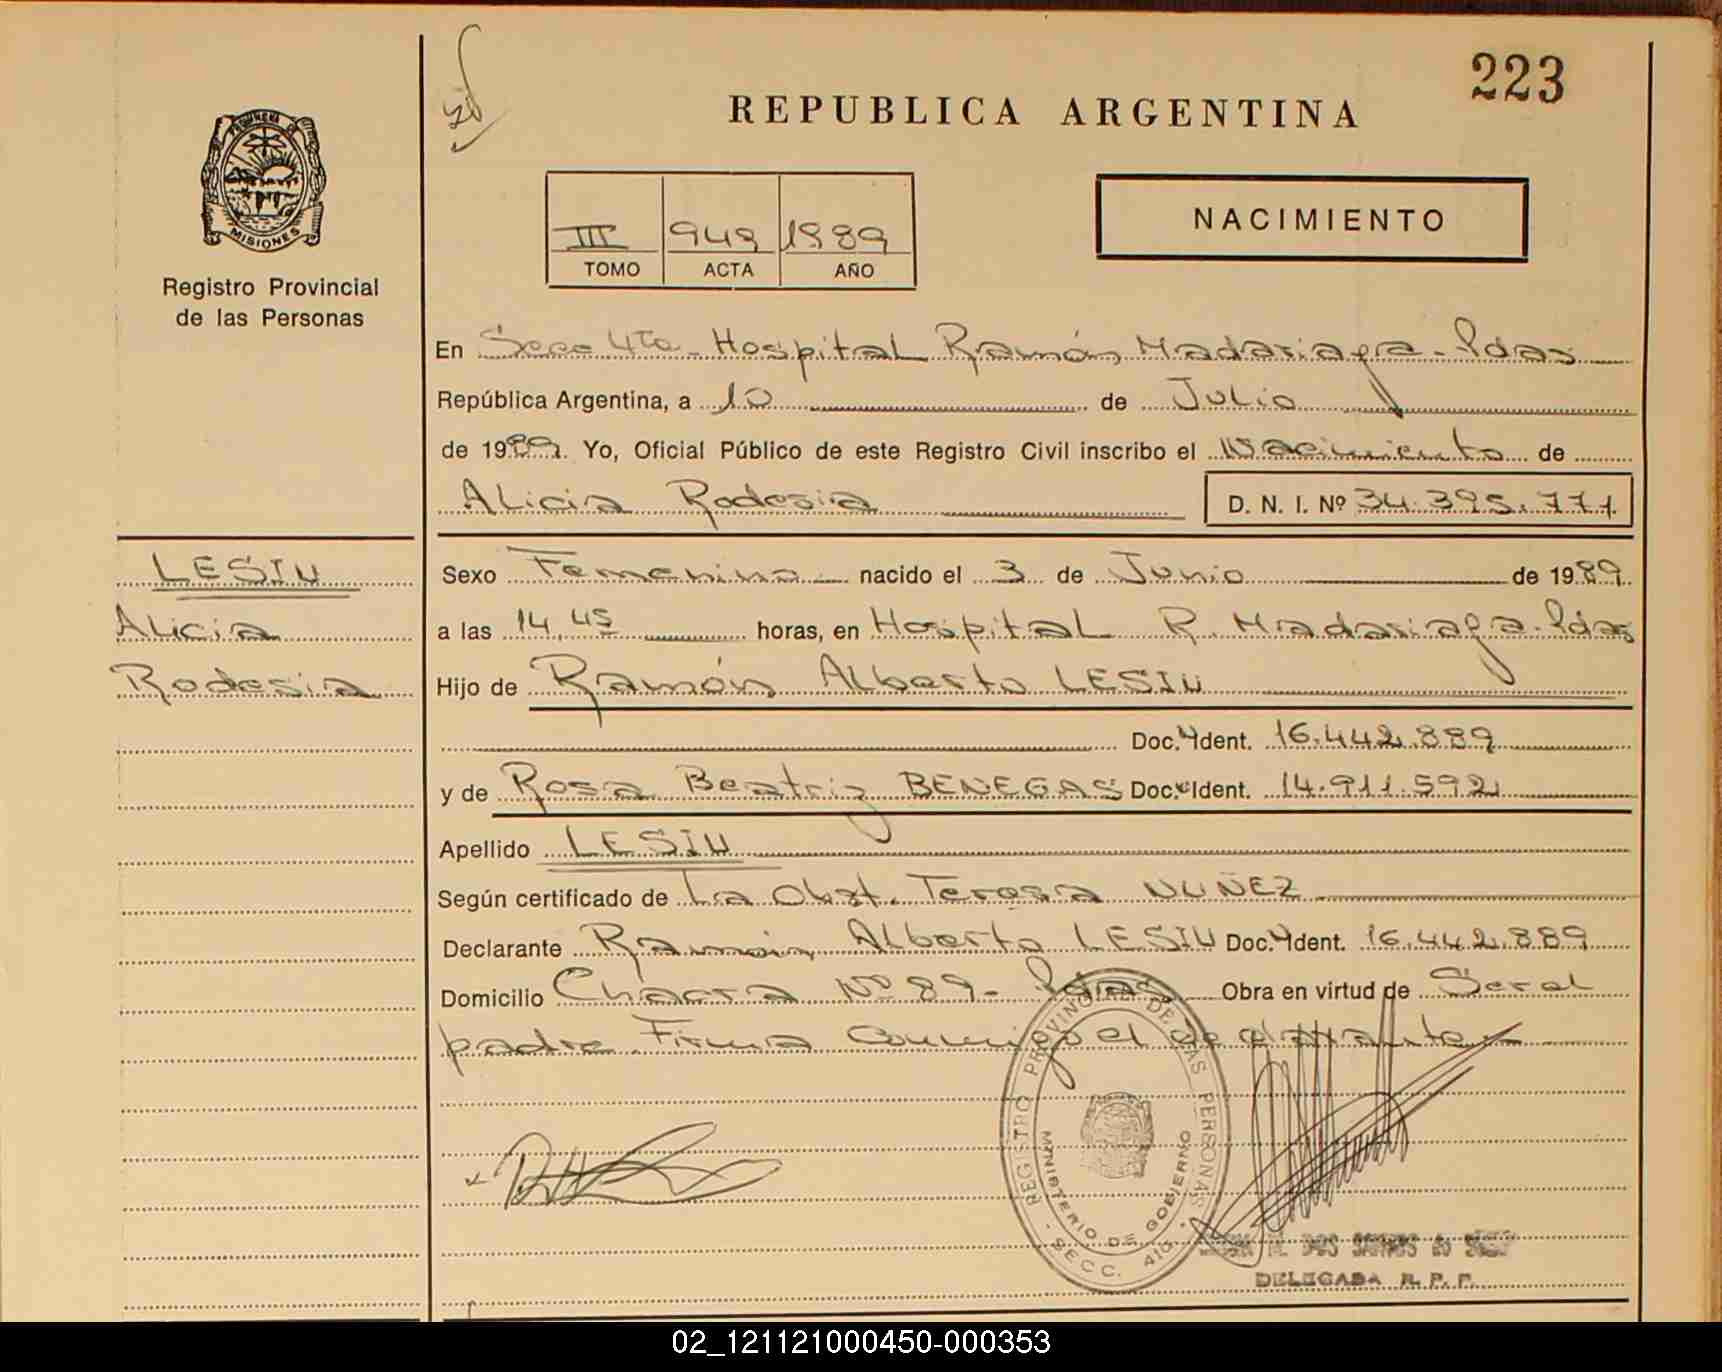 223
REPUBLICA ARGENTINA
PROVINCIA DE
MISIONES
Registro Provincial
de las Personas
III 949 1989
TOMO ACTA AÑO
NACIMIENTO
En Secc 4ta - Hospital Ramón Madariaga - Pdas
República Argentina, a 10 de Julio
de 1989. Yo, Oficial Público de este Registro Civil inscribo el Nacimiento de
Alicia Rodesia D. N. I. Nº 34.395.771
LESIU
Alicia
Rodesia
Sexo Femenino nacido el 3 de Junio de 1989
a las 14,45 horas, en Hospital R. Madariaga - Pdas
Hijo de Ramón Alberto LESIU
Doc. Ident. 16.442.889
y de Rosa Beatriz BENEGAS Doc. Ident. 14.911.592
Apellido LESIU
Según certificado de La Obst. Teresa NUÑEZ
Declarante Ramón Alberto LESIU Doc. Ident. 16.442.889
Domicilio Chacra Nº 89 - Pdas Obra en virtud de Ser el
padre. Firma Conmigo el declarante
REGISTRO PROVINCIAL DE LAS PERSONAS
MINISTERIO DE GOBIERNO
SECC. 4ta.
DOS SANTOS de
DELEGADA R. P. P.
02_121121000450-000353